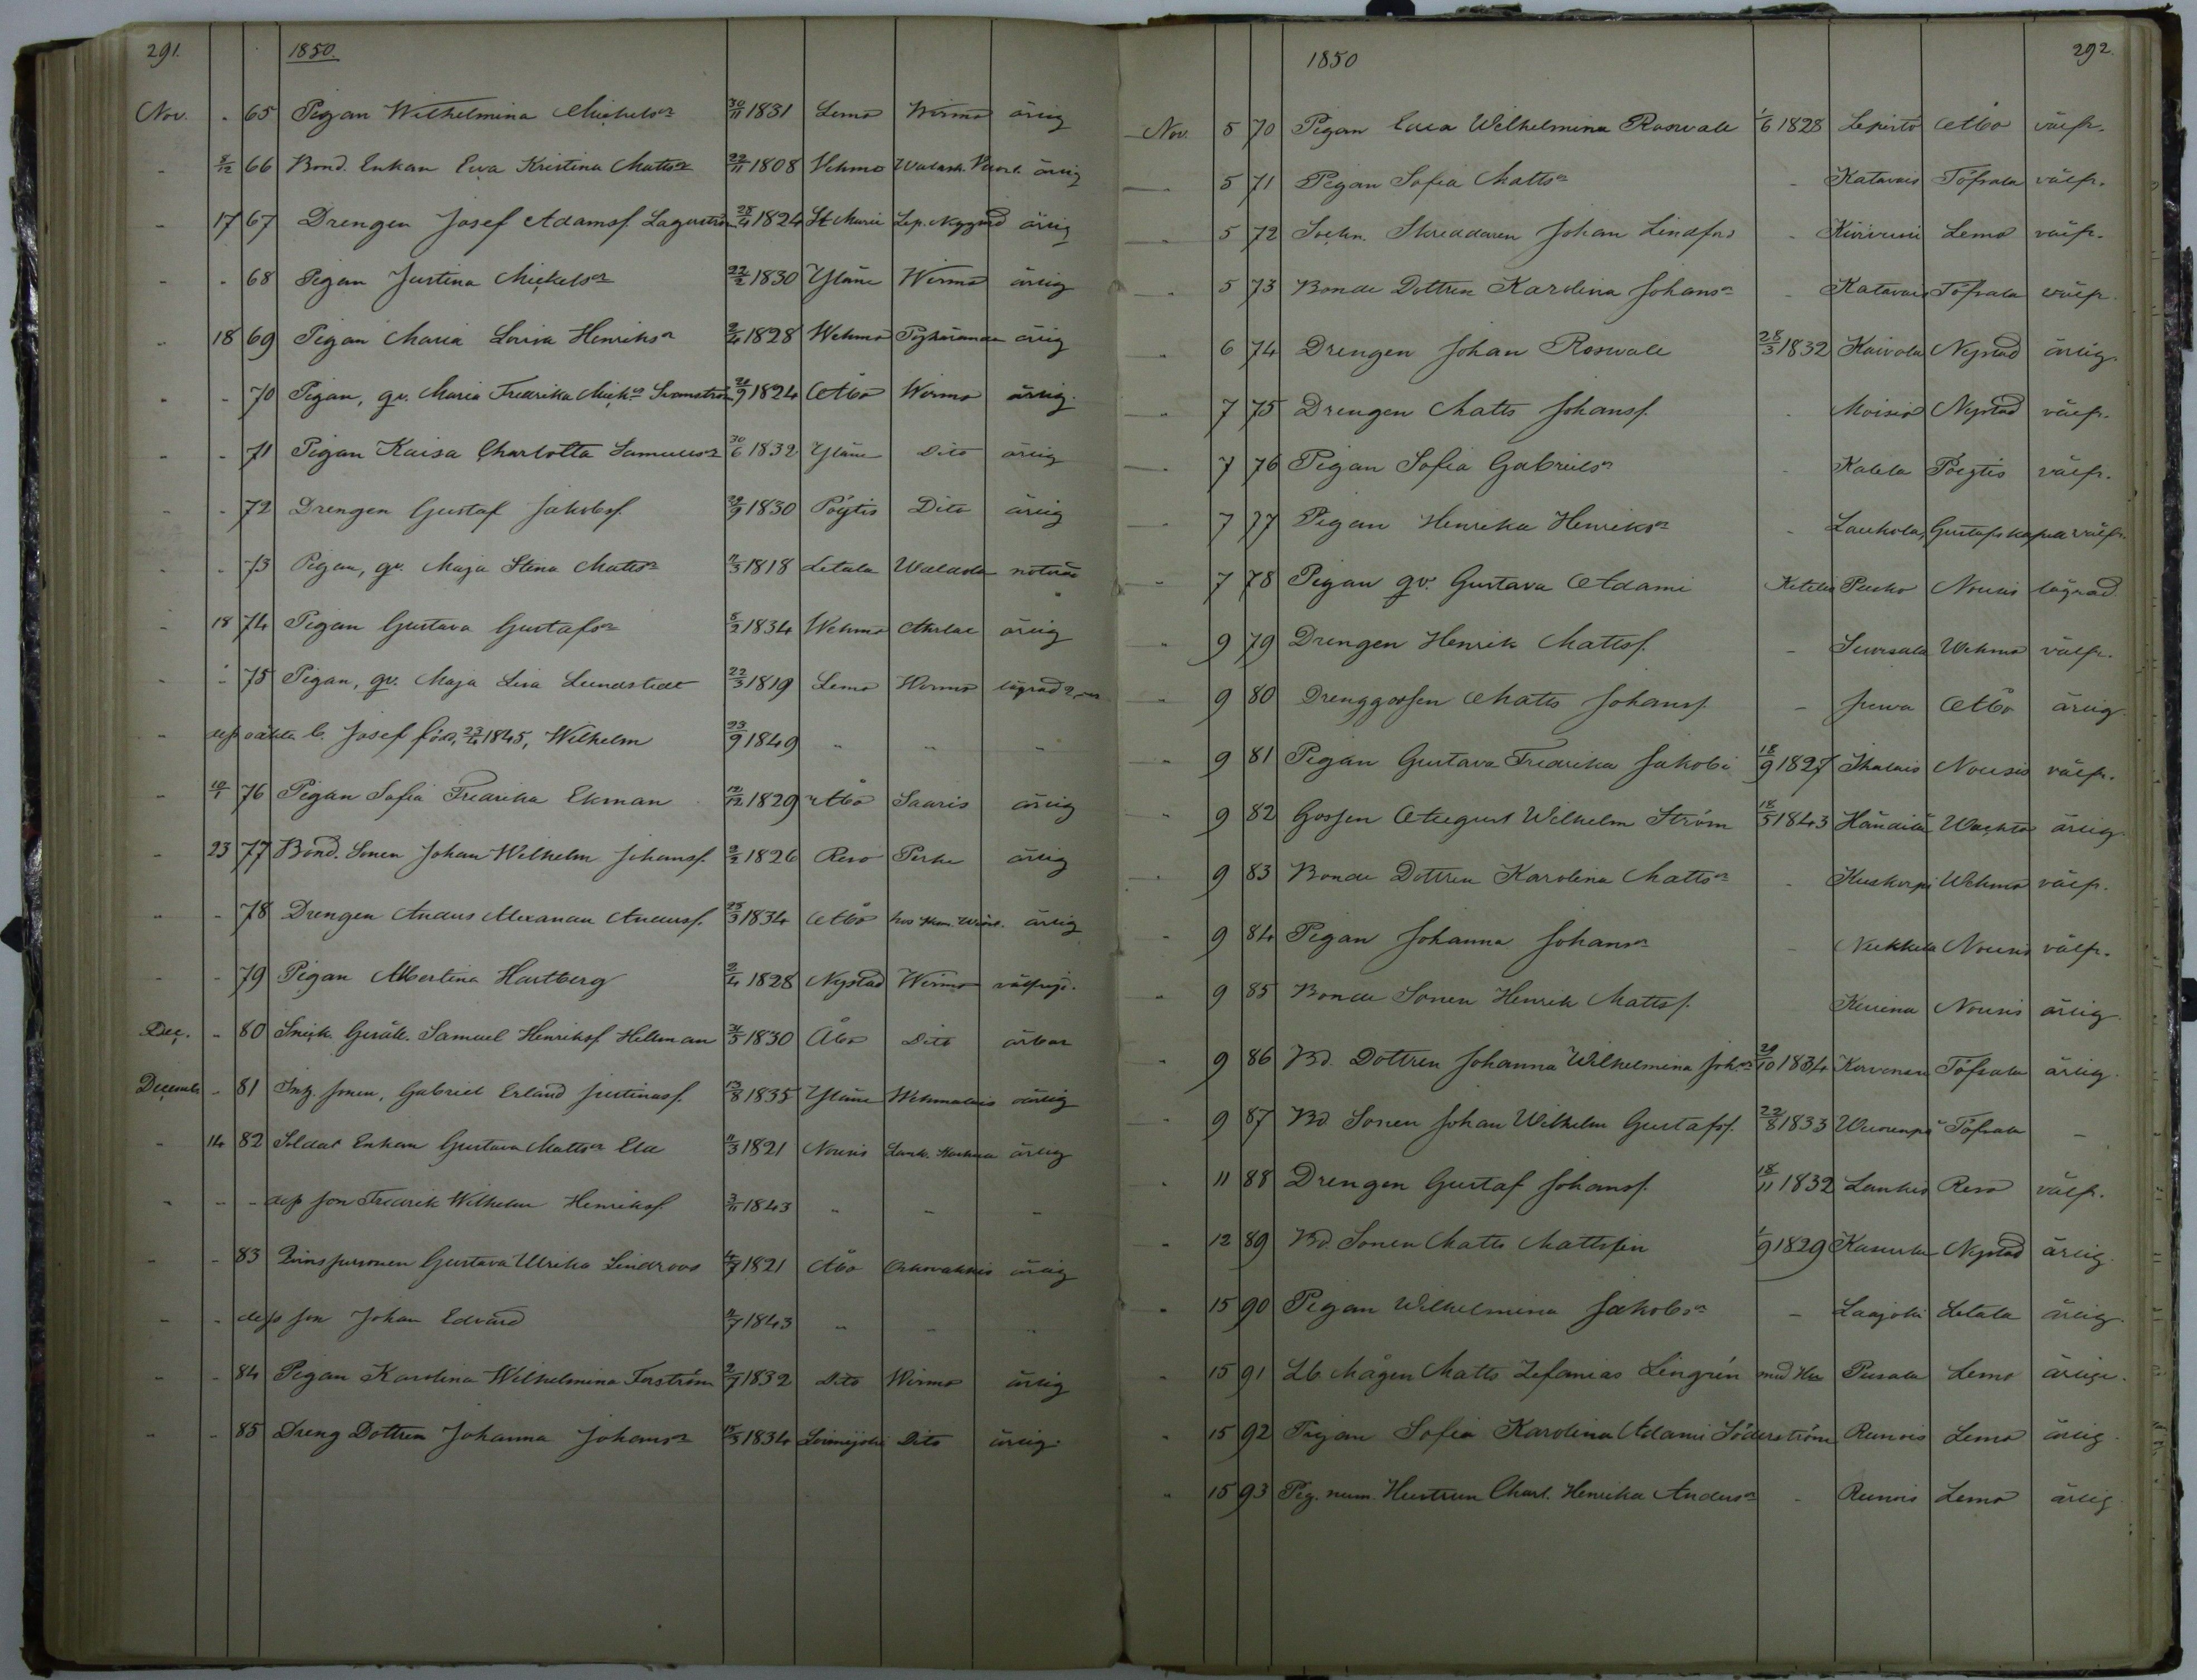 291. 1850.
Nov. - 65 Pigan Wilhelmina Mickels 30/11 1831 Lemo Wirmo ärlig
- 5/12 66 Bond. Enkan Ewa Kristina Matts 22/11 1808 Vehmo ärlig
- 17 67 Drengen Josef Adamsf. Lagerström 28/4 1824 St Marie Lep. Nygård ärlig
- - 68 Pigan Justina Mickels 22/2 1830 Yläne Wirmo ärlig
- 18 69 Pigan Maria Lovisa Henriks 2/4 1828 Wehmo Pyhäranda ärlig
- - 70 Pigan, qv. Maria Fredrika Mick 21/9 1824 Åbo Wirmo ärlig.
- - 71 Pigan Kaisa Charlotta Samuels 30/6 1832 Yläne Dito ärlig
- - 72 Drengen Gustaf Jakobsf. 29/9 1830 Pöytis Dito ärlig
- - 73 Pigan, qv. Maja Stena Mats 1818 Letala
- 18 74 Pigan Gustava Gustafs 5/2 1834 Wehmo ärlig
- - 75 Pigan, qv. Maja Lisa Lundstedt 22/3 1819 Lemo Wirmo lägrad 2
- dess oäkta b. Josef född, 23/4 1845, Wilhelm 23/9 1849 - - -
- 10/1 76 Pigan Sofia Fredrika Ekman 12/12 1829 Åbo Saaris ärlig
- 23 77 Bond. Sonen Johan Wilhelm Johansf. 2/2 1826 Reso ärlig
- - 78 Drengen Anders Alexander Andersf. 25/3 1834 Åbo ärlig
- - 79 Pigan Albertina Hartberg 2/4 1828 Nystad Wirmo välfrejd.
Dec. - 80 Snick. Gesäll. Samuel Henriksf. Hellman 31/5 1830 Åbo Dito ärbar
December - 81 Inh. sonen, Gabriel Erland Justinusf. 13/8 1835 Yläne Wehmalais ärlig
- 14 82 Soldat Enkan Gustava Matts 1821 Nousis ärlig
- - - dess son Fredrik Wilhelm Henriksf. 3/11 1843 - - -
- - 83 Gustava Ulrika Lindroos 4/7 1821 Åbo ärlig
- - dess son Johan Edvard 1843 - - -
- - 84 Pigan Karolina Wilhelmina Forström 2/7 1832 Dito Wirmo ärlig
- - 85 Dreng Dottren Johanna Johans 1834 Loimijoki Dito ärlig.
1850 292.
Nov. 5 70 Pigan Ewa Wilhelmina Roswall 1/6 1828 Lepistö Åbo välfr.
- 5 71 Pigan Sofia Matts - Katavais Töfsala välfr.
- 5 72 Sockn. Skreddaren Johan Lindfors - Lemo välfr.
- 5 73 Bonde Dottren Karolina Johans - Katavais Töfsala välfr.
- 6 74 Drengen Johan Roswall 28/3 1832 Kaivola Nystad ärlig.
- 7 75 Drengen Matts Johansf. - Moisio Nystad välfr.
- 7 76 Pigan Sofia Gabriels - Kalela Pöytis välfr.
- 7 77 Pigan Henrika Henriks - Laukola, Gustafs kapell välfr.
- 7 78 Pigan qv. Gustava Adami Nousis lägrad
- 9 79 Drengen Henrik Mattsf. - Wehmo välfr.
- 9 80 Drenggossen Matts Johansf. - Juva Åbo ärlig
- 9 81 Pigan Gustava Fredrika Jakobi 18/9 1827 Ihalais Nousis välfr.
- 9 82 Gossen August Wilhelm Ström 18/5 1843 ärlig
- 9 83 Bonde Dottren Karolina Matts - Kuskorpi Wehmo välfr.
- 9 84 Pigan Johanna Johans - Nousis välfr.
- 9 85 Bonde Sonen Henrik Mattsf. Nousis ärlig.
- 9 86 Bd. Dottren Johanna Wilhelmina Joh. 29/10 1834 Korvensu Töfsala ärlig.
- 9 87 Bd Sonen Johan Wilhelm Gustafsf. 22/8 1833 Wuorenpä Töfsala -
- 11 88 Drengen Gustaf Johansf. 18/11 1832 Lankis Reso välfr.
- 12 89 Bd. Sonen Matts Mattsson 1/9 1829 Nystad ärlig.
- 15 90 Pigan Wilhelmina Jakobs - Laajoki Letala ärlig.
- 15 91 Lb. Mågen Matts Zefanias Lingrén med Hu Pusala Lemo ärlige.
- 15 92 Pigan Sofia Karolina Adami Söderström Runois Lemo ärlig
- 15 93 Pig. num. Hustrun Charl. Henrika Anders - Runois Lemo ärlig